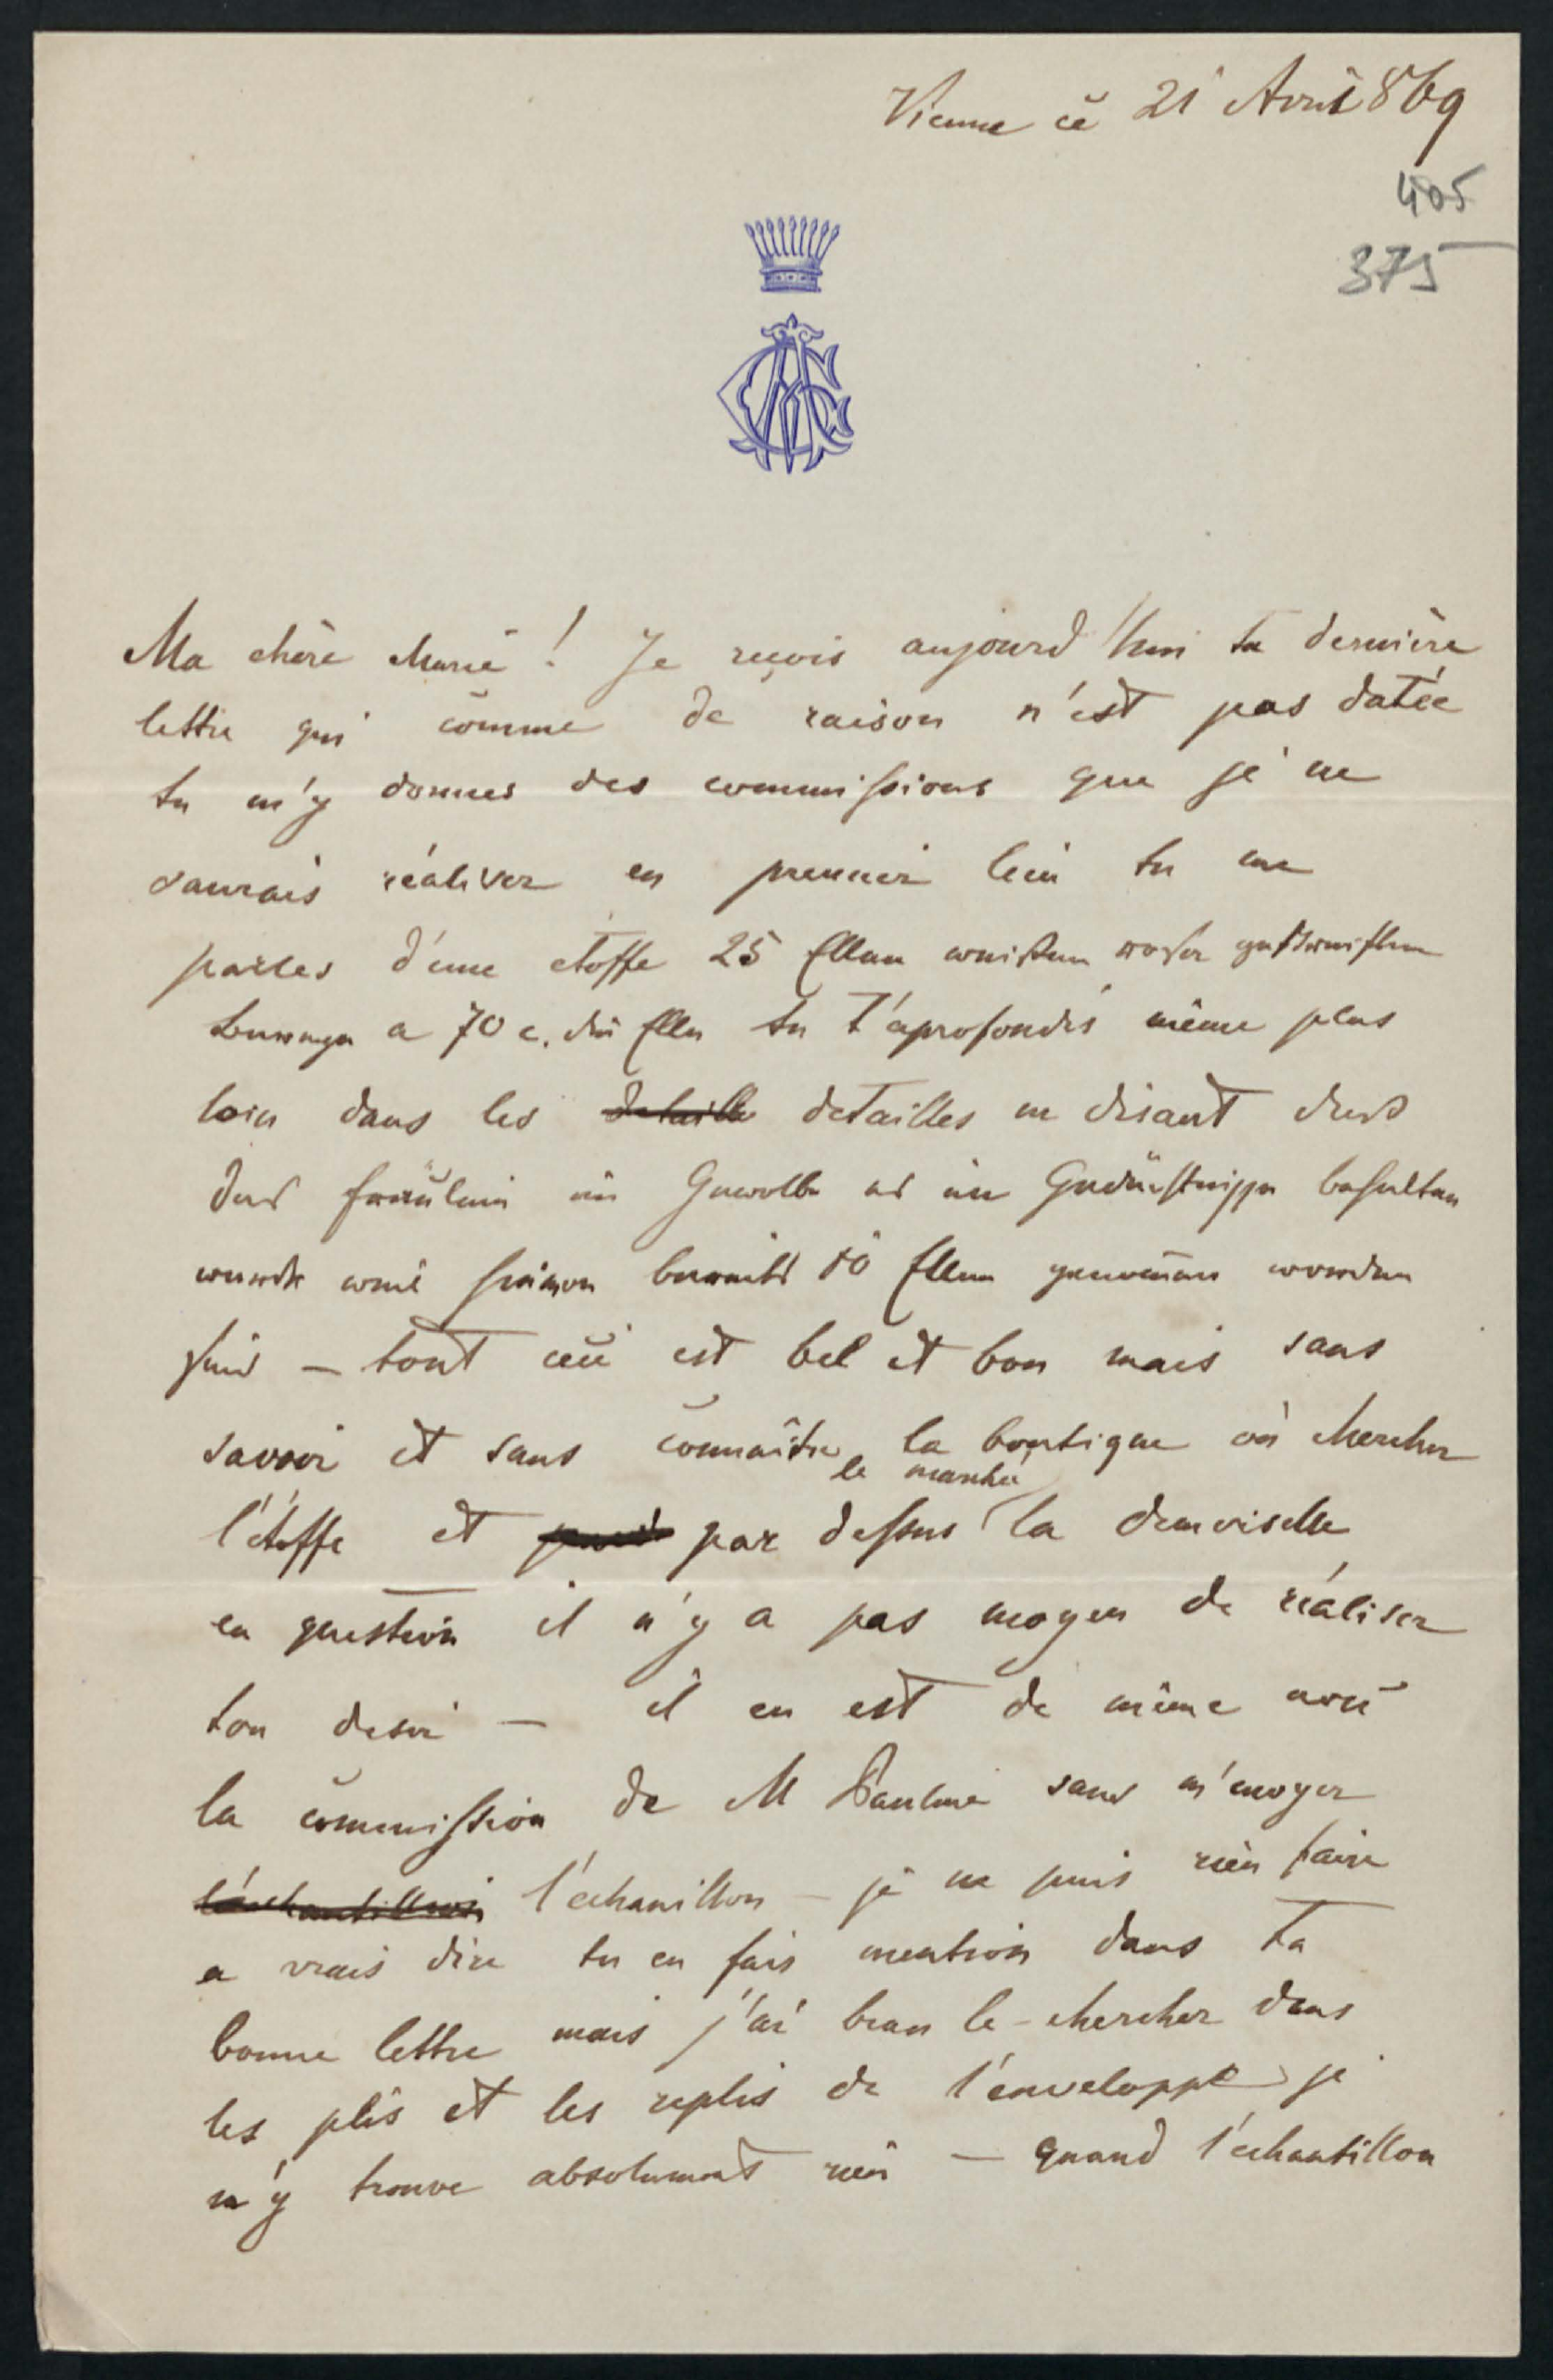 Vienne ce 21 Avril 869
405
375
Ma chère Marie! Je reçois aujourd'hui ta dernière
lettre qui comme de raison n'est pas datée
tu m'y donnes des commissions que je ne
saurais réaliser en premier lieu tu me
parles d'une etoffe 25 Ellen
a 70 c. die Elle tu t'aprofondis même plus
loin dans les detaille detailles en disant dass
das Fräulein im Gewölbe es im Gedächtnisse behalten
werde weil hievon bereits 10 Ellen genommen worden
sind — tout ceci est bel et bon mais sans
savoir et sans connaitre la boutique où chercher
le marché
l'étoffe et par dessus la demoiselle
en question il n'y a pas moyen de réaliser
ton desir — il en est de même avec
la commission de M Pauline sans m'envoyer
l'échantillon l'echanillon — je ne puis rien faire
a vrais dire tu en fais mention dans ta
bonne lettre mais j'ai beau le chercher dans
les plis et les replis de l'enveloppe je
n'y trouve absolument rien — quand l'echantillon